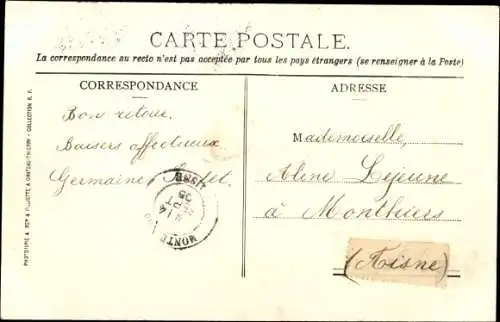 CARTE POSTALE.
La correspondance au recto n'est pas acceptée par tous les pays étrangers (se renseigner à la Poste)
CORRESPONDANCE
Bon retour
Baisers affectueux
Germaine
ADRESSE
Mademoiselle
Aline Lejeune
à Monthiers
(Aisne)
AISNE
MONTH
COLLECTION R. F.